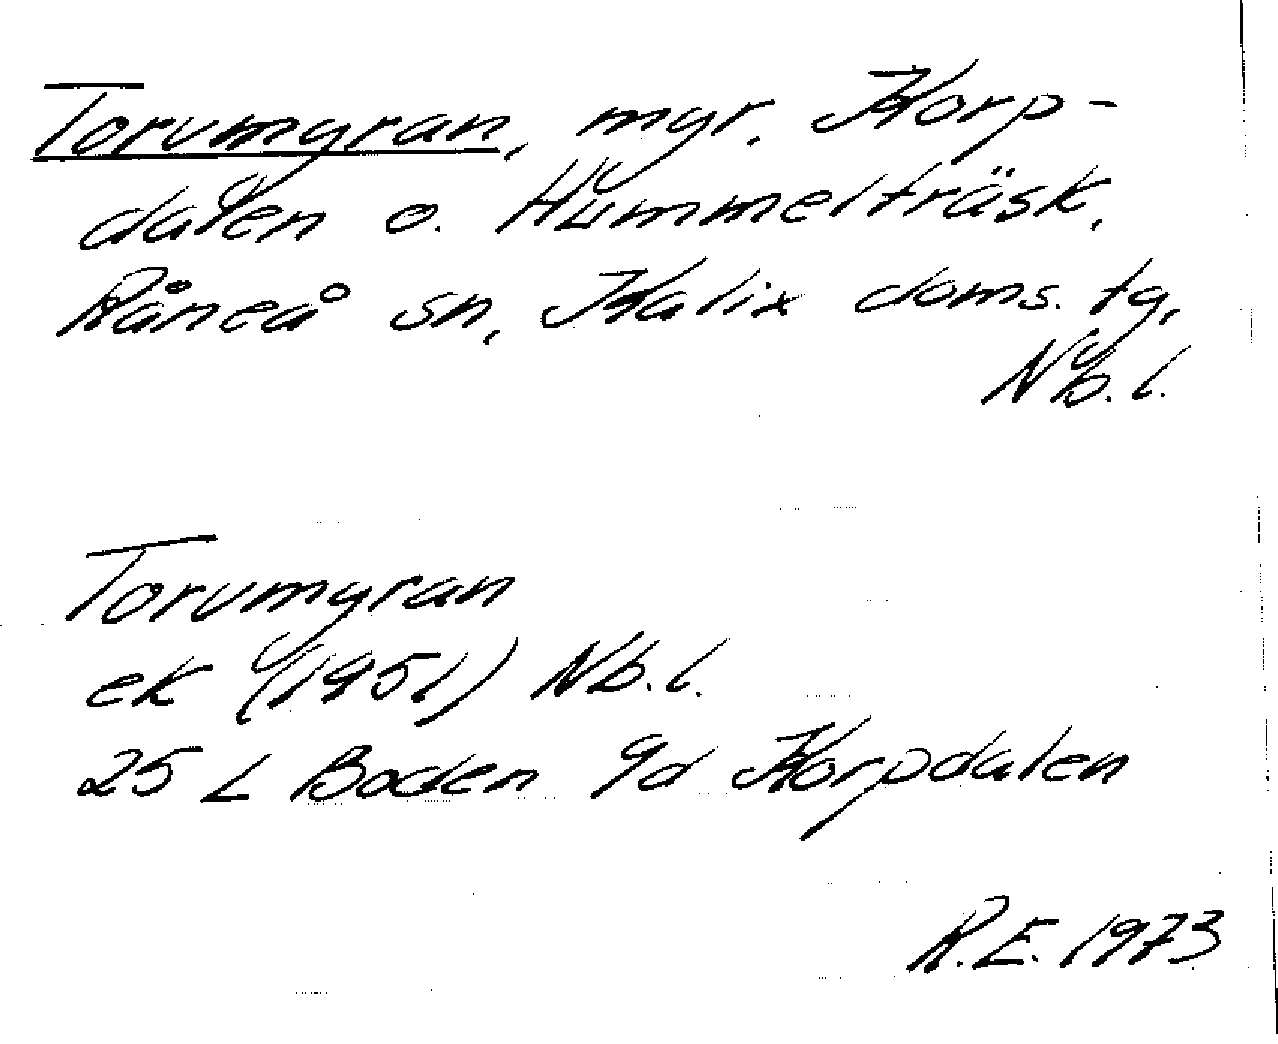 Torvmyran, myr. Korp-
dalen o. Hummelträsk,
Råneå sn, Kalix doms. tg,
Nb. l.
Torvmyran
ek (1951) Nb. l.
25 L Boden 9d Korpdalen
R.E. 1973